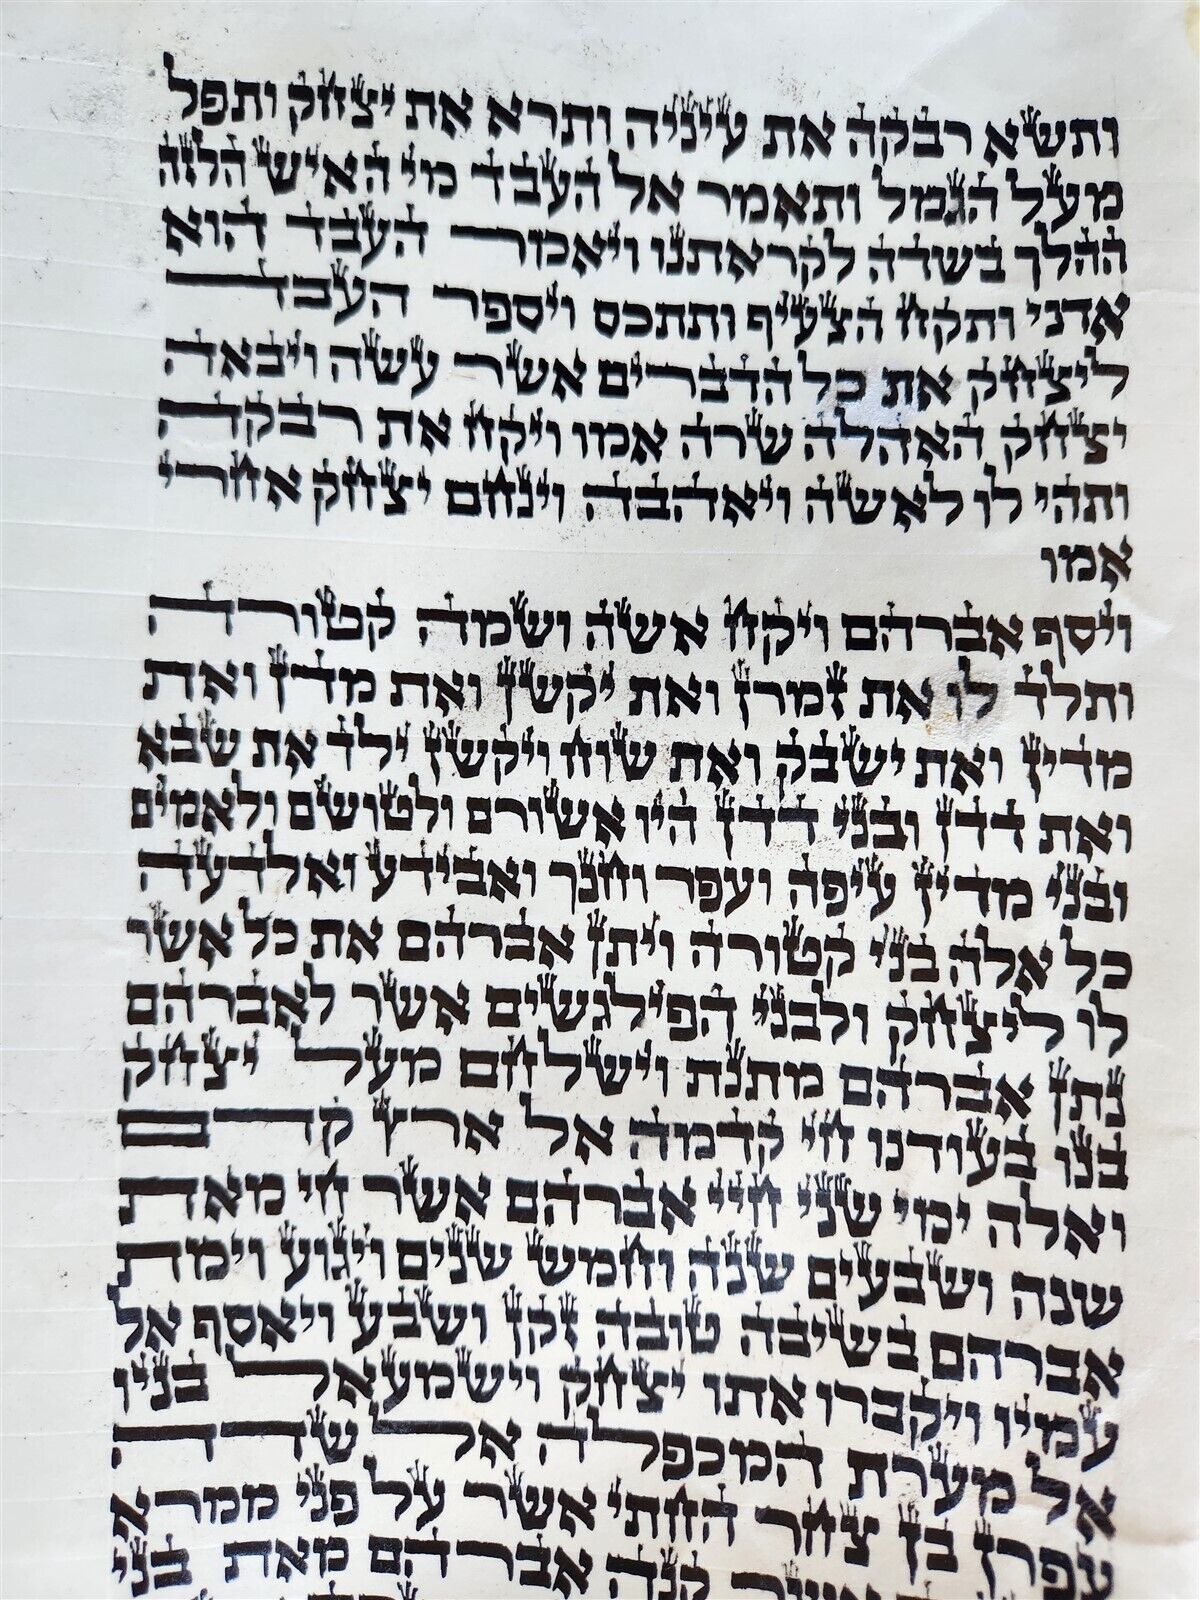 ותשא רבקה את עיניה ותרא את יצחק ותפל
מעל הגמל ותאמר אל העבד מי האיש הלזה
ההלך בשדה לקראתנו ויאמר העבד הוא
אדני ותקח הצעיף ותתכס ויספר העבד
ליצחק את כל הדברים אשר עשה ויבאה
יצחק האהלה שרה אמו ויקח את רבקה
ותהי לו לאשה ויאהבה וינחם יצחק אחרי
אמו
ויסף אברהם ויקח אשה ושמה קטורה
ותלד לו את זמרן ואת יקשן ואת מדן ואת
מדין ואת ישבק ואת שוח ויקשן ילד את שבא
ואת דדן ובני דדן היו אשורם ולטושם ולאמים
ובני מדין עיפה ועפר וחנך ואבידע ואלדעה
כל אלה בני קטורה ויתן אברהם את כל אשר
לו ליצחק ולבני הפילגשים אשר לאברהם
נתן אברהם מתנת וישלחם מעל יצחק
בנו בעודנו חי קדמה אל ארץ קדם
ואלה ימי שני חיי אברהם אשר חי מאת
שנה ושבעים שנה וחמש שנים ויגוע וימת
אברהם בשיבה טובה זקן ושבע ויאסף אל
עמיו ויקברו אתו יצחק וישמעאל בניו
אל מערת המכפלה אל שדה
עפרן בן צחר החתי אשר על פני ממרא
אשר קנה אברהם מאת בני